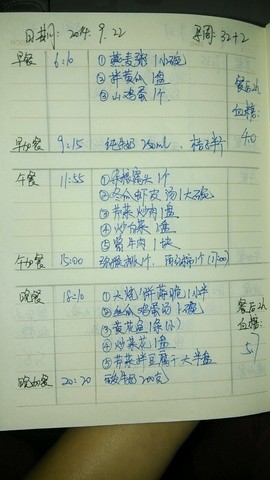 日期: 2014.9.22 孕周: 32+2
早餐 6:10 ①燕麦粥1小碗
②拌黄瓜1盘
③山鸡蛋1个. 餐后2h
血糖:
早加餐 9:15 纯牛奶250ml、桔子半个 4.0
午餐 11:55 ①杂粮窝头1个
②冬瓜虾皮汤1大碗
③芹菜炒肉1盘
④炒白菜1盘
⑤酱牛肉1块
午加餐 15:00 1个
晚餐 18:10 ①大烧饼1小半 餐后2h
②丝瓜鸡蛋汤1碗 血糖:
③黄花鱼1条(小)
④炒菜花1盘 5.7
⑤芹菜拌豆腐干大半盘
晚加餐 20:20 酸牛奶200克